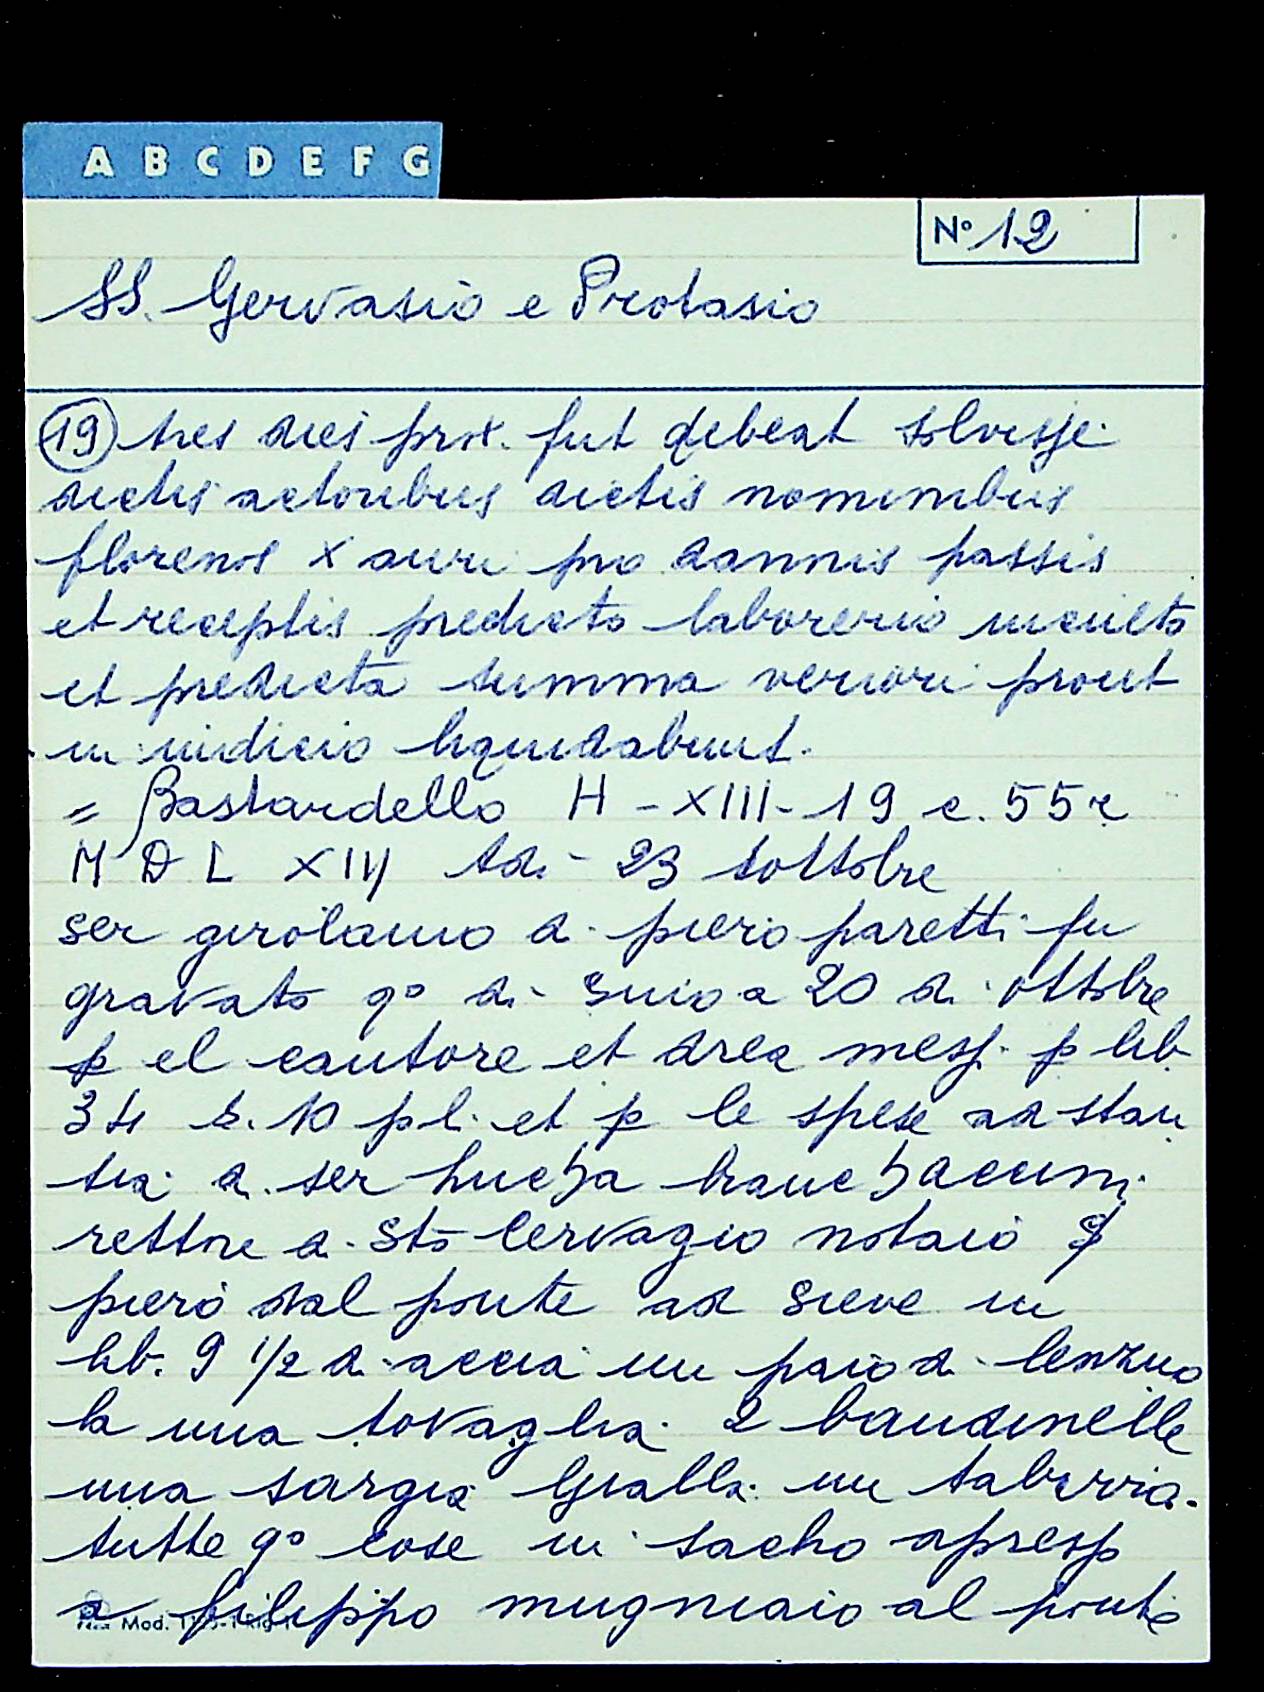 A B C D E F G
N° 12
SS. Gervasio e Protasio
19 tres dies prox. fut debeat solvisse
dictis actoribus dictis nominibus
florenos X auri pro dannis passis
et receptis predicto laborerio inculto
et predicta summa veriori prout
in iudicio liquidabunt.
= Bastardello H - XIII - 19 c. 55 r
M D L XIV Adi - 23 dottobre
ser girolamo di piero paretti fu
gravato qo di - a 20 di ottobre
p el cautore et area mess. p lib
34 s. 10 pl. et p le spese ad stan
tia di ser lucha
rettore di Sto Cervagio notaio
piero dal ponte ad Sieve in
lib. 9 1/2 di accia un paio di lenzuo
la una tovaglia 2 bandinelle
una sargia Gialla un
tutte qo cose in sacho apresso
a filippo mugniaio al ponte
Mod.